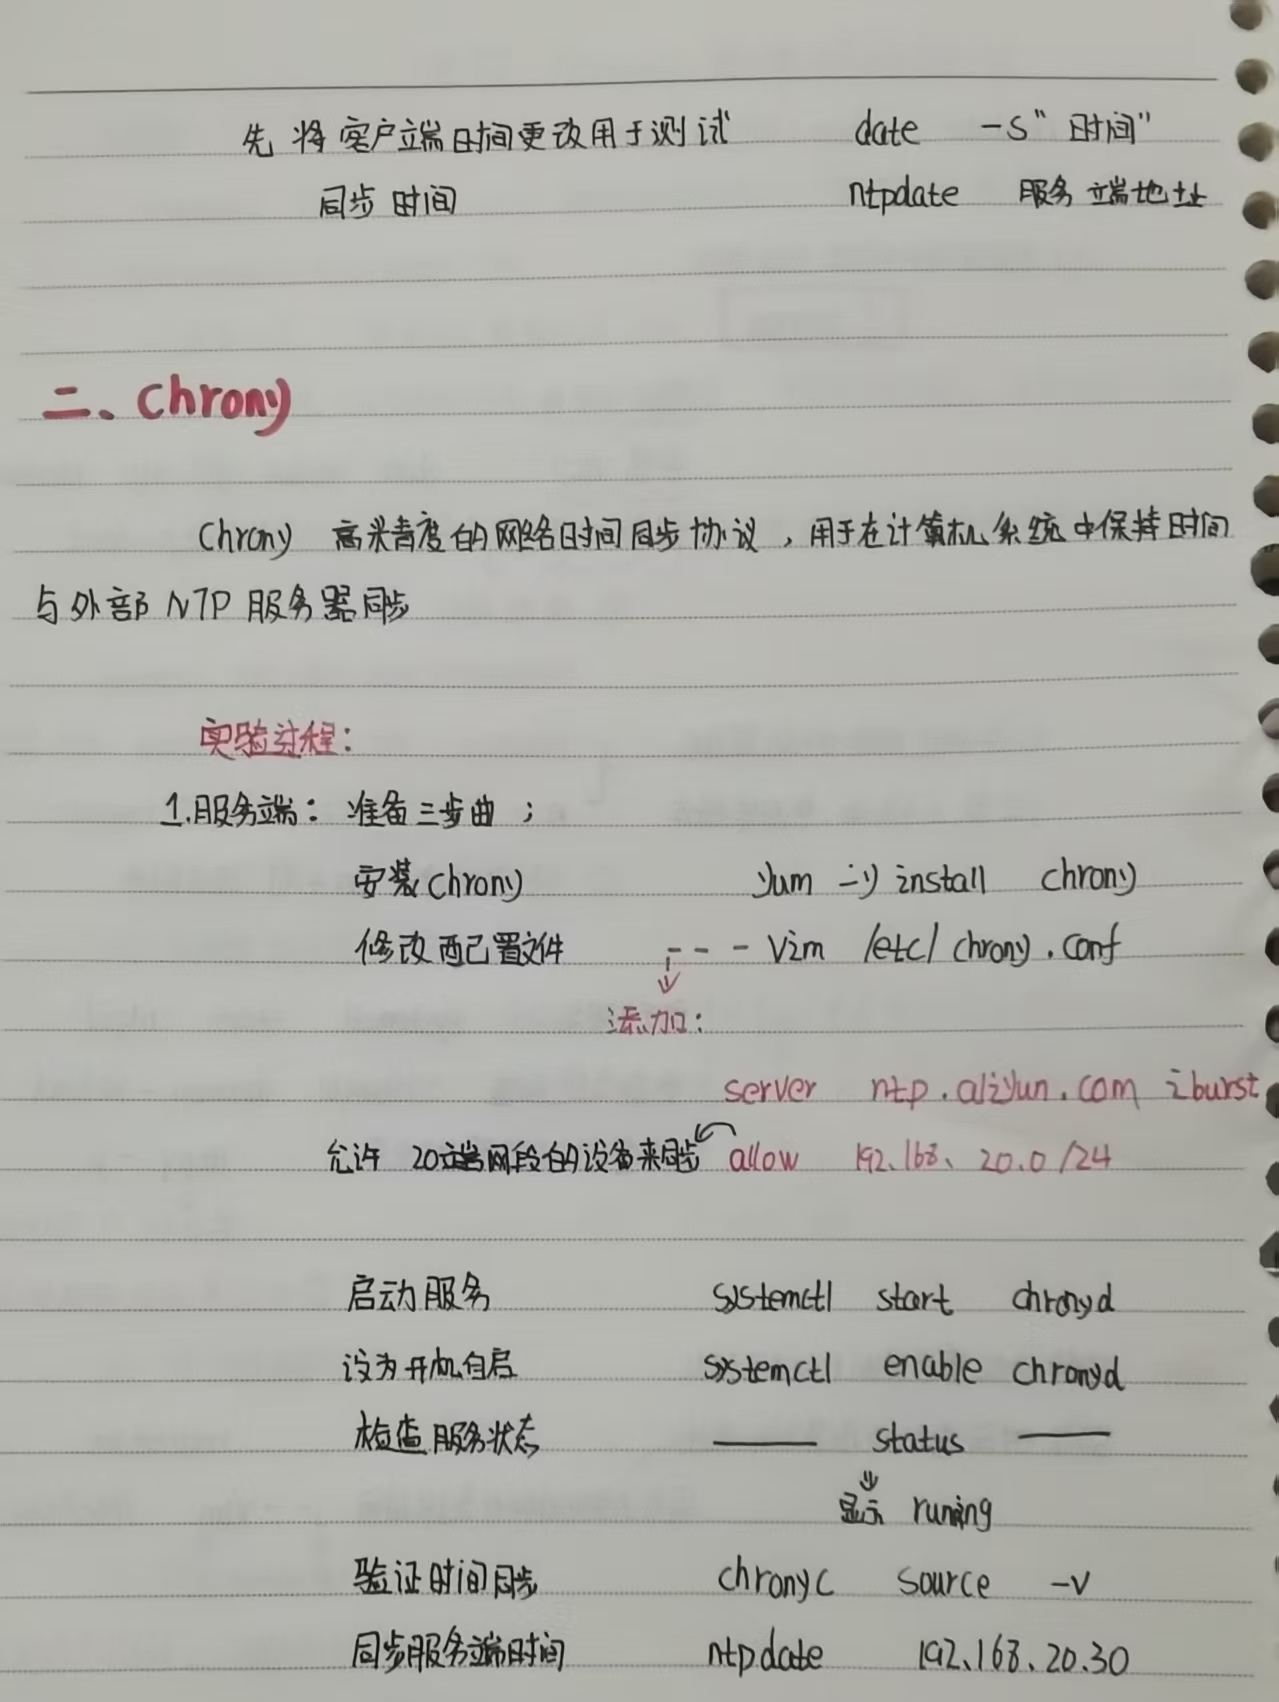 先将客户端时间更改用于测试 date -s"时间"
同步时间 ntpdate 服务端地址
二、Chrony
Chrony 高精度的网络时间同步协议，用于在计算机系统中保持时间
与外部NTP服务器同步
实验过程：
1.服务端：准备三步曲；
安装Chrony yum -y install chrony
修改配置文件 --- Vim /etc/chrony.conf
添加：
server ntp.aliyun.com iburst
允许 20端网段的设备来同步 allow 192.168、20.0/24
启动服务 systemctl start chronyd
设为开机自启 systemctl enable chronyd
检查服务状态 —— status ——
显示 runing
验证时间同步 chronyc source -v
同步服务端时间 ntpdate 192、168、20.30